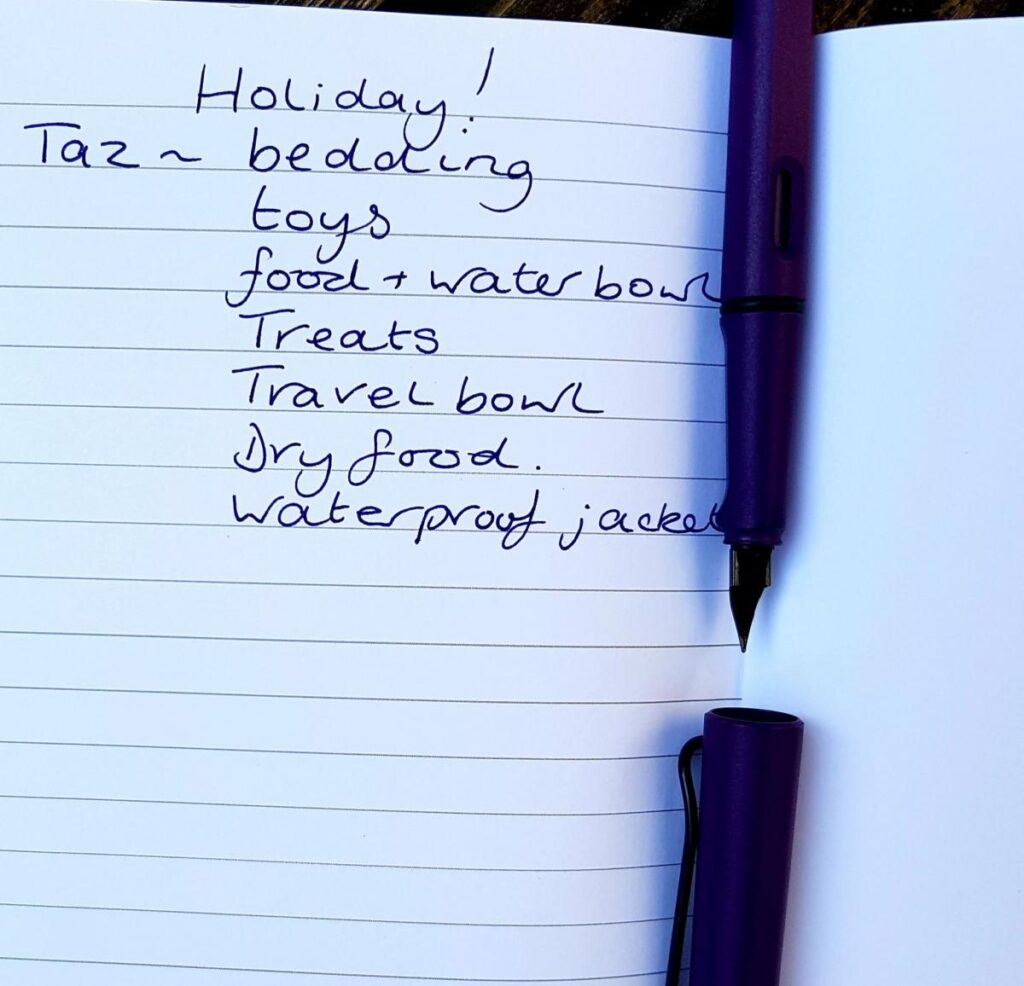 Holiday!
Taz ~ bedding
toys
food + water bowl
Treats
Travel bowl
Dry food.
Waterproof jacket